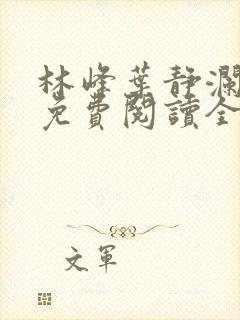 林峰葉靜瀾
免費閱讀全
文軍